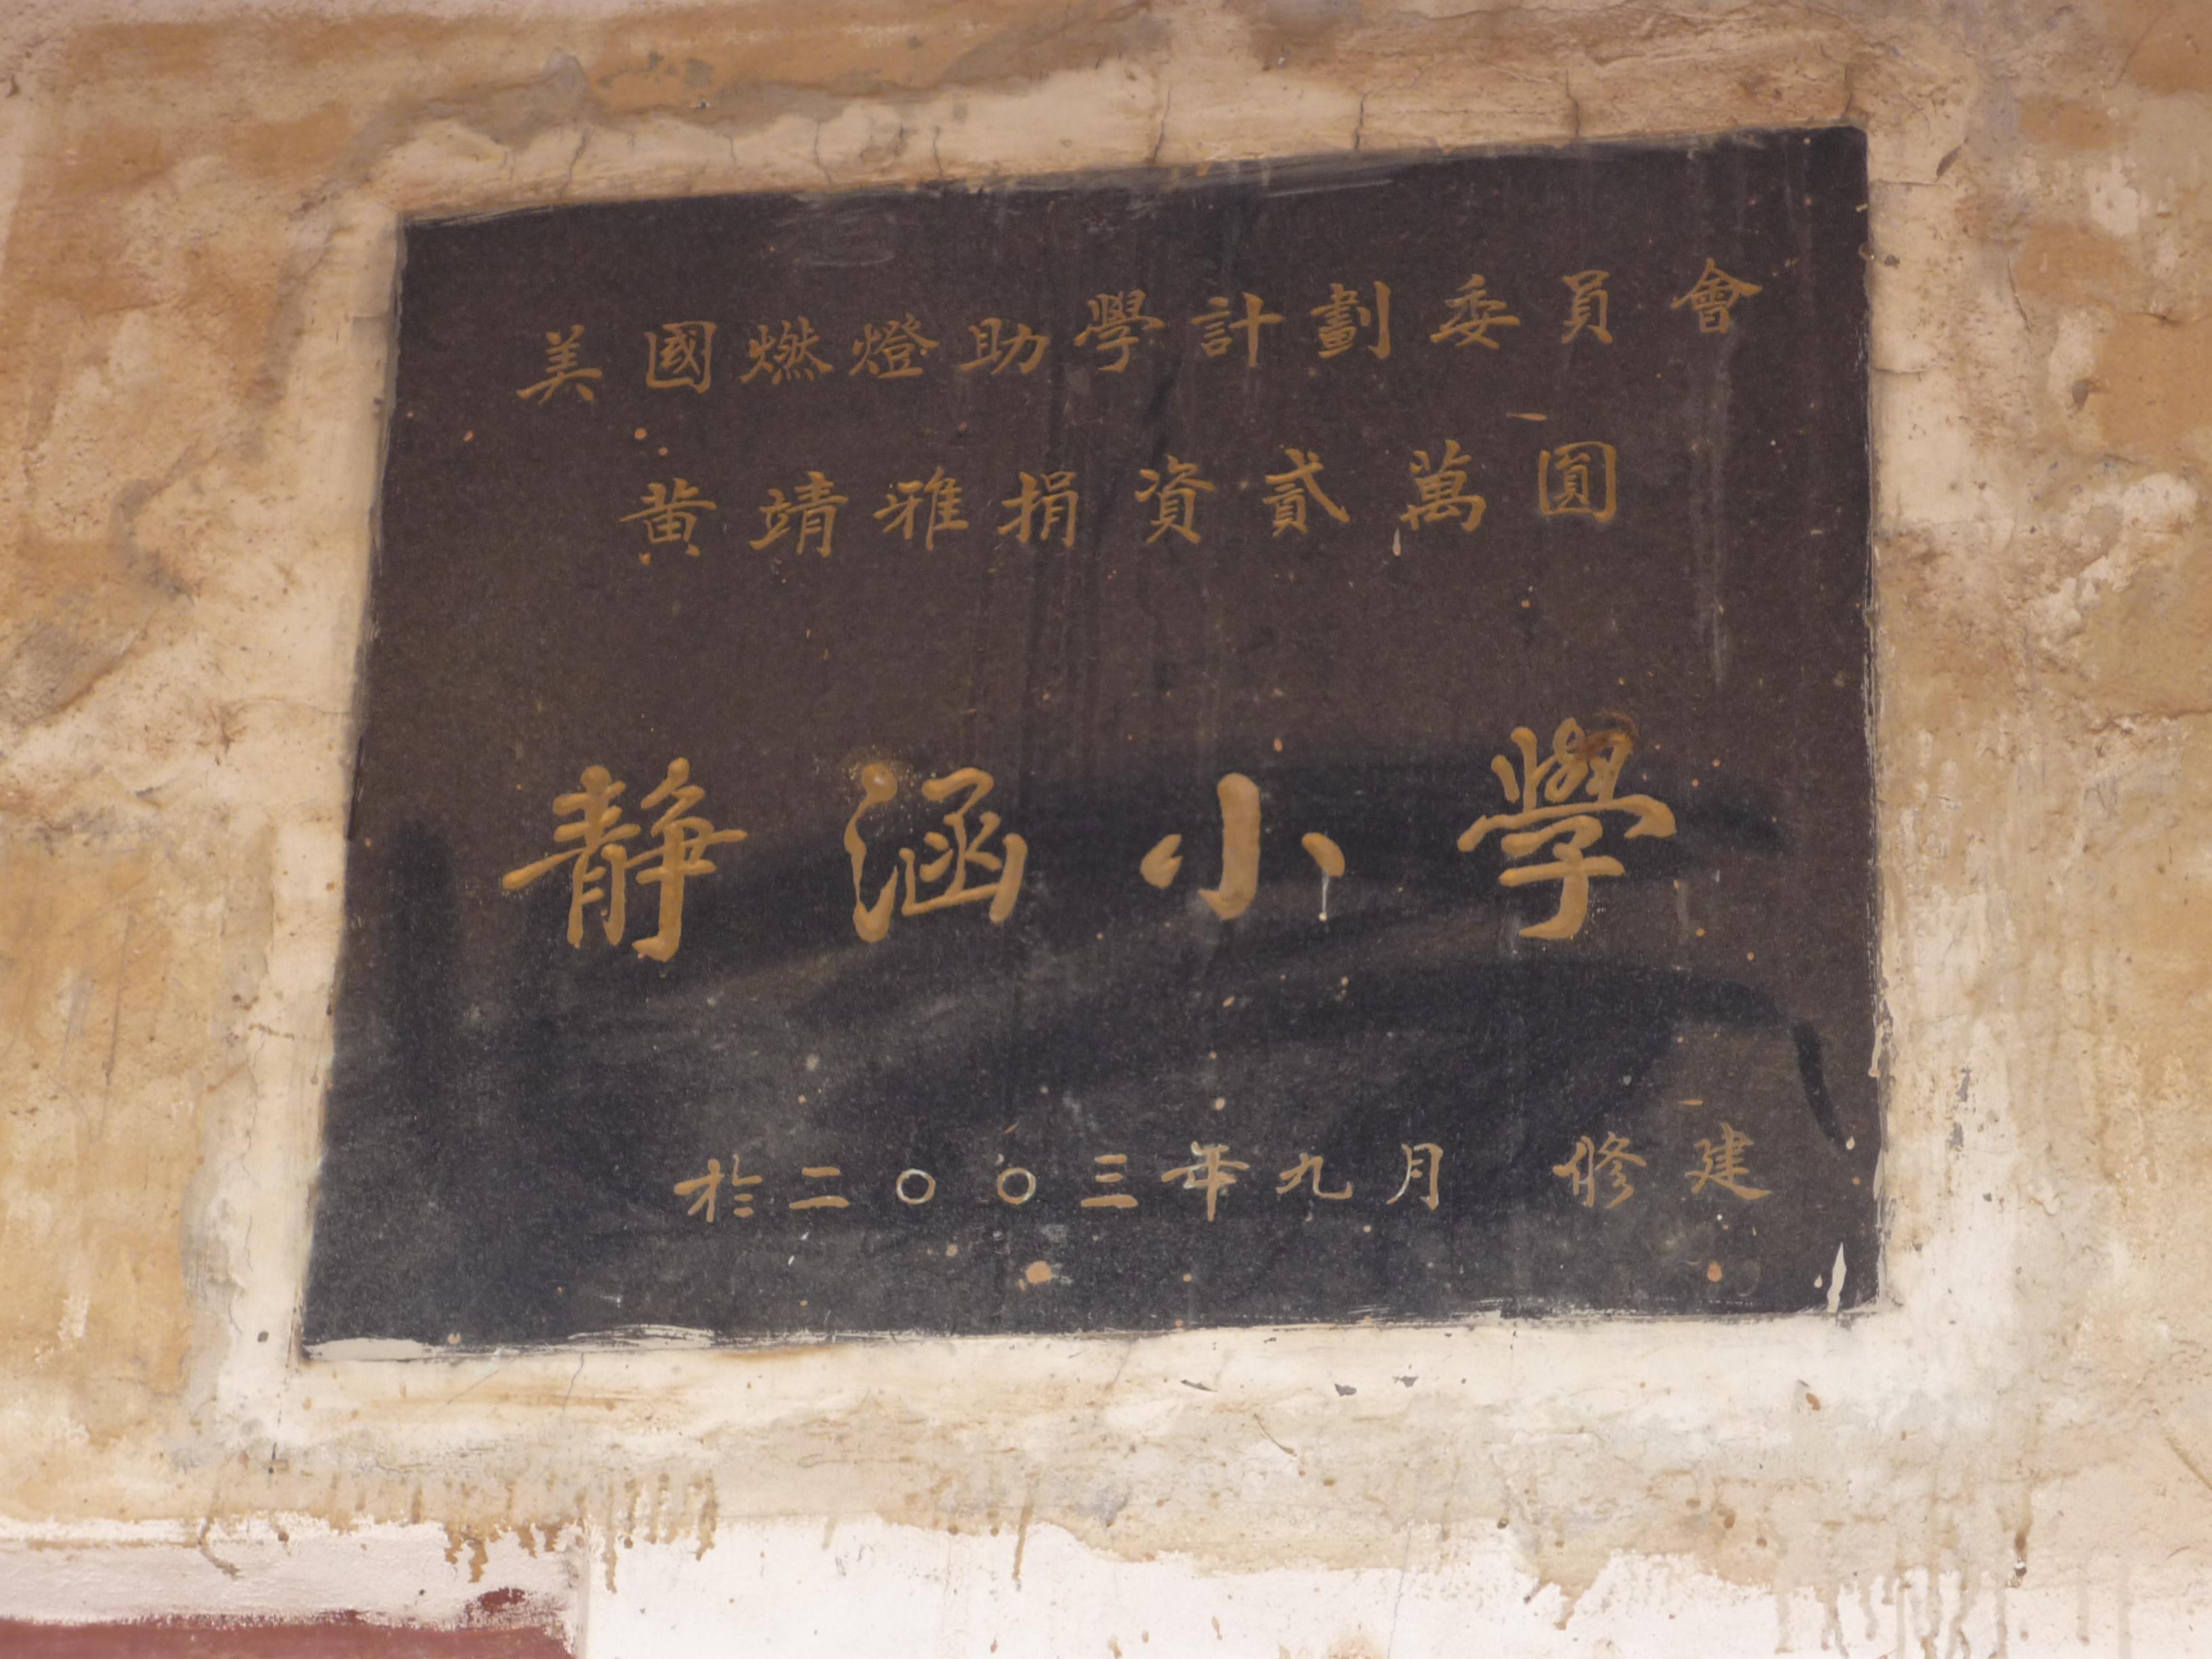 美國燃燈助學計劃委員會
黄靖雅捐資貳萬圓
静涵小學
於二〇〇三年九月 修建